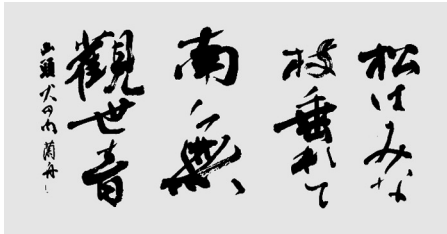 松はみな
枝垂れて
南無
觀世音
山頭火の句 蘭舟